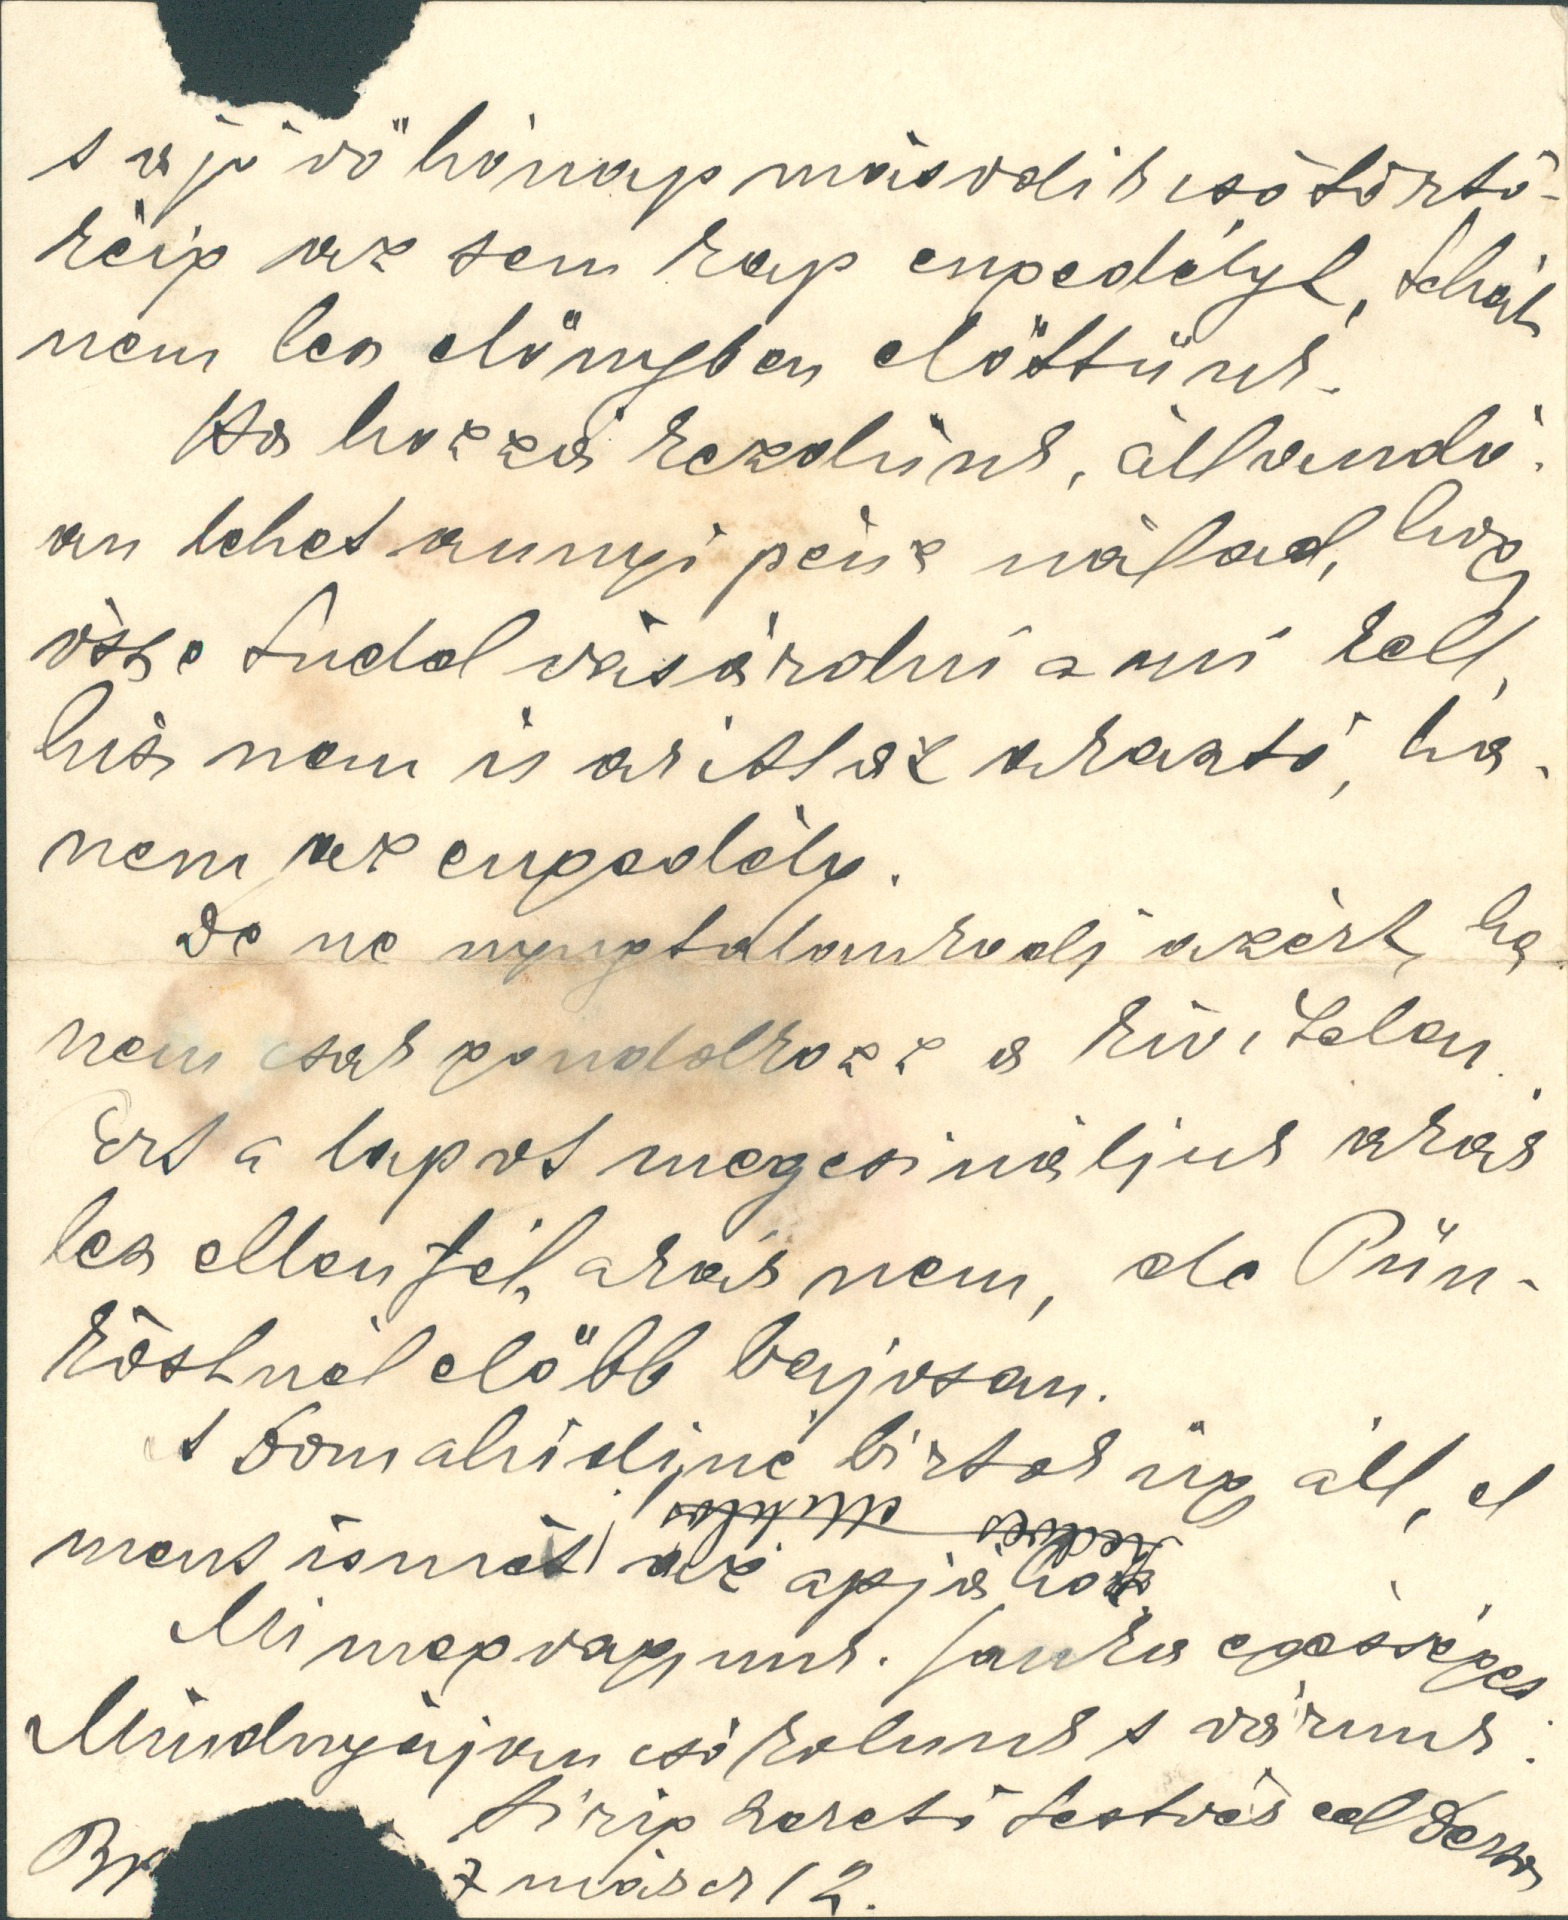 s a jövő hónap második csötörtö-
kéig az sem kap engedélyt, tehát
nem les előnyben előttünk.
Ha hozzá kezdünk, állandó-
an lehet annyi pénz nálad, hogy
össze tudod vásárolni ami kell,
his nem is az itt az akasztó, ha-
nem az engedély.
De ne nyugtalankodj azért, ha
nem csak gondolkozz a kivitelen.
Ezt a lapot megcsináljuk akár
les ellenfél, akár nem, de Pün-
köstnél előbb bajosan.
s Domahidiné birtok ügy áll, el
ment ismét az apjához
Mi megvagyunk. Sanka egésséges.
Mindnyájan csókolunk s várunk.
hirig szerető testvéred Dezső
Bp 7 március 12.